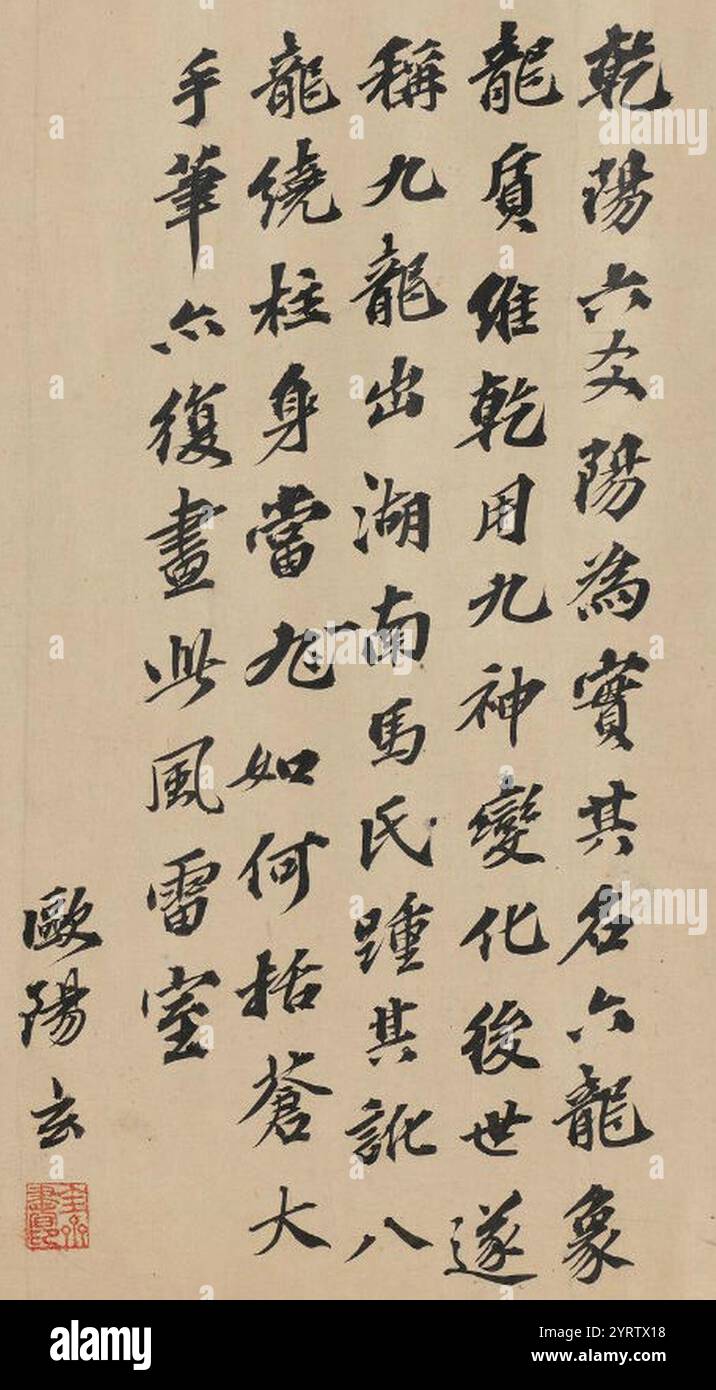 乾陽六爻陽為實其名六龍象
龍質維乾用九神變化後世遂
稱九龍出湖南馬氏踵其訛八
龍繞柱身當一九如何括蒼大
手筆亦復畫此風雷室
歐陽玄
alamy
Image ID: 2YRTX18
www.alamy.com